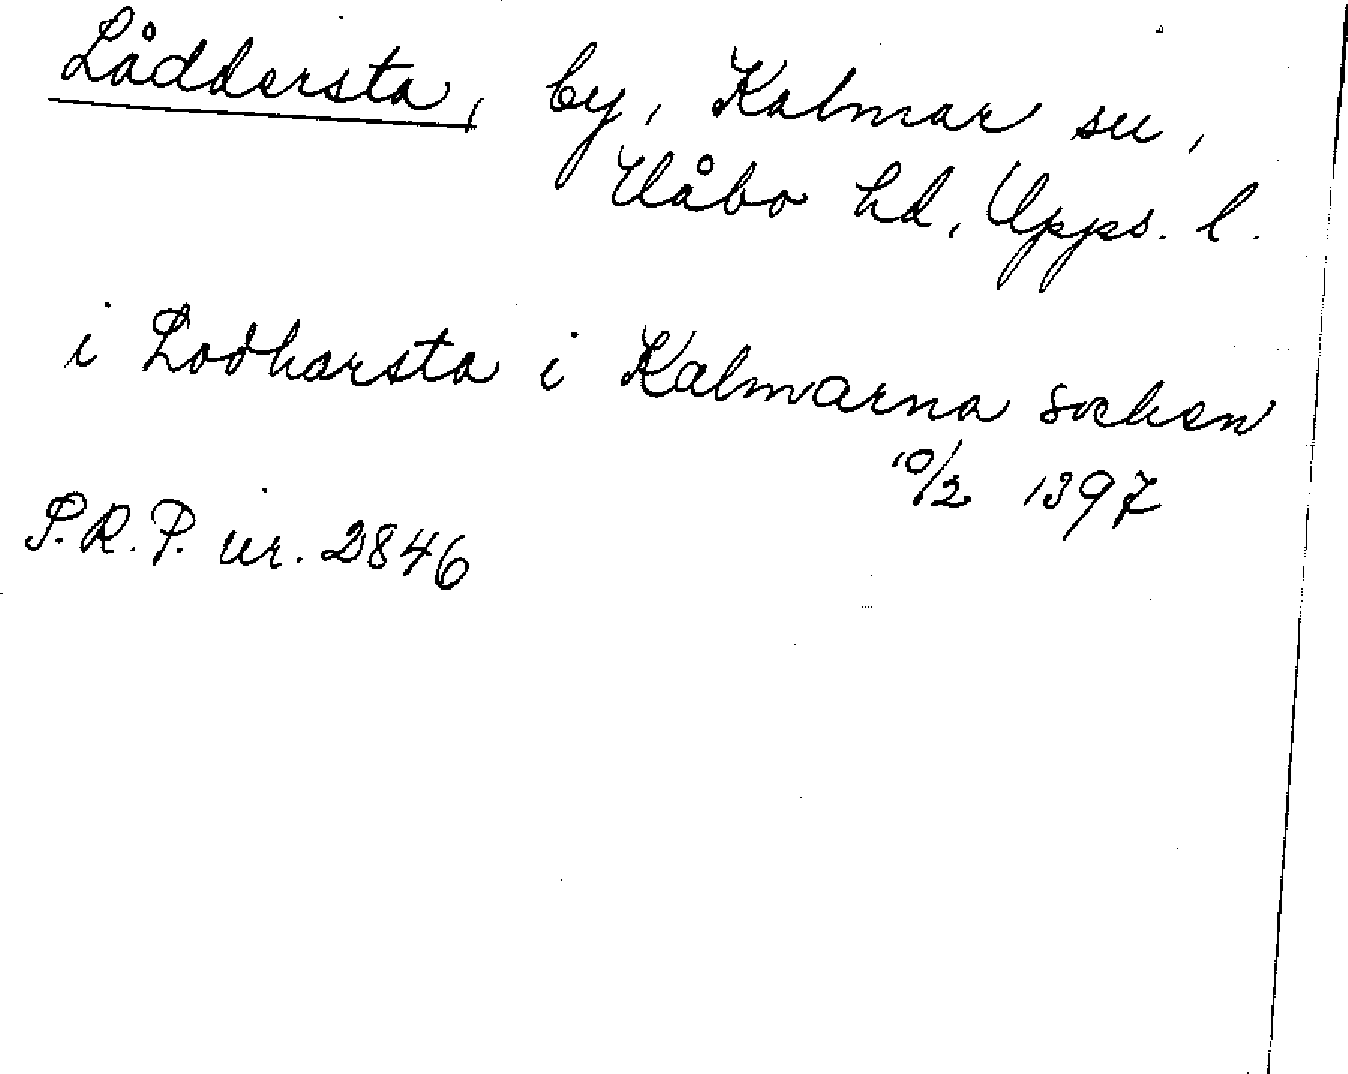 Låddersta, by, Kalmar sn,
Håbo hd, Upps. l.
i Lodharsta i Kalmarna soken
10/2 1397
S.R.P. nr. 2846